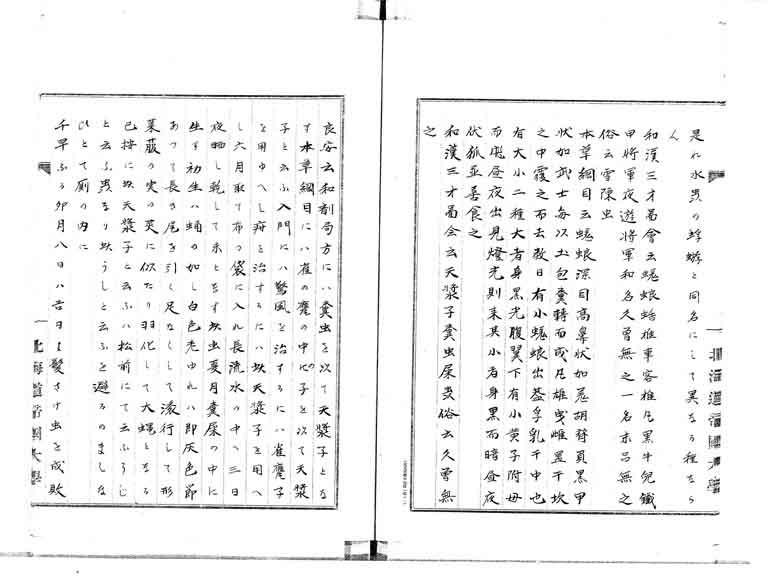 是れ水黽の蜉蝣と同名にして異なる種なら
ん
和漢三才啚會云蜣蜋蛣推車客推丸黒牛兒鐵
甲將軍夜遊將軍和名久曾無之一名末呂無之
俗云雪隠虫
本草綱目云蜣蜋深目高鼻状如羗胡背頁黒甲
状如武士每以土包糞轉而成丸雄曳雌置于坎
之中覆之而去数日有小蜣蜋出盖孚乳于中也
有大小二種大者身黒光腹翼下有小黄子附母
而飛昼夜出見燈光則来其小者身黒而暗昼夜
伏狐並善食之
和漢三才啚会云天漿子糞虫屎虫俗云久曾無
之
良安云和剤局方にハ糞虫を以て天漿子とな
す本草綱目にハ雀の甕の中に子を以て天漿
子と云ふ入門にハ驚風を治するにハ雀甕子
を用ゆへし疳を治するにハ坎天漿子を用へ
し六月取て布の袋に入れ長流水の中へ三日
夜晒し乾して末となす坎虫夏月糞屎の中に
生す初生ハ蛹の如し白色老ゆれハ即灰色節
あつて長き尾を引く足なくして漾行して形
菜菔の実の莢に似たり羽化して大蝿となる
已按に坎天漿子と云ふハ松前にて云ふうじ
と云ふ虫なり坎うしと云ふを避るのましな
ひとて厠の内に
千早ふる卯月八日ハ吉日よ髪さけ虫を成敗
北海道帝國大學
北海道帝國大學